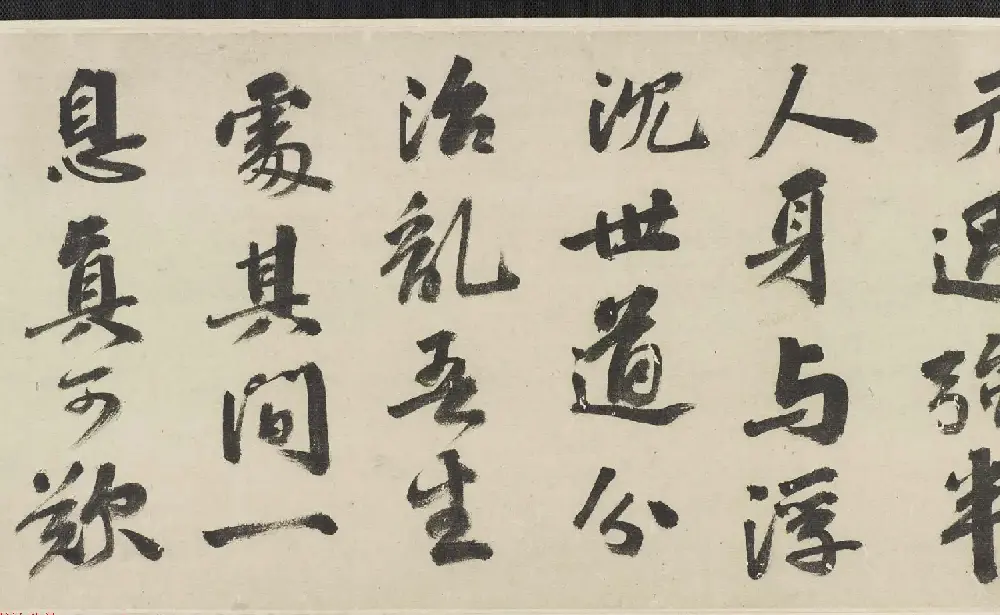 半
人身与浮
沉世道分
治亂吾生
處其間一
息真可歎